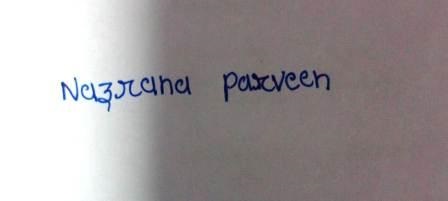 Nazrana parveen